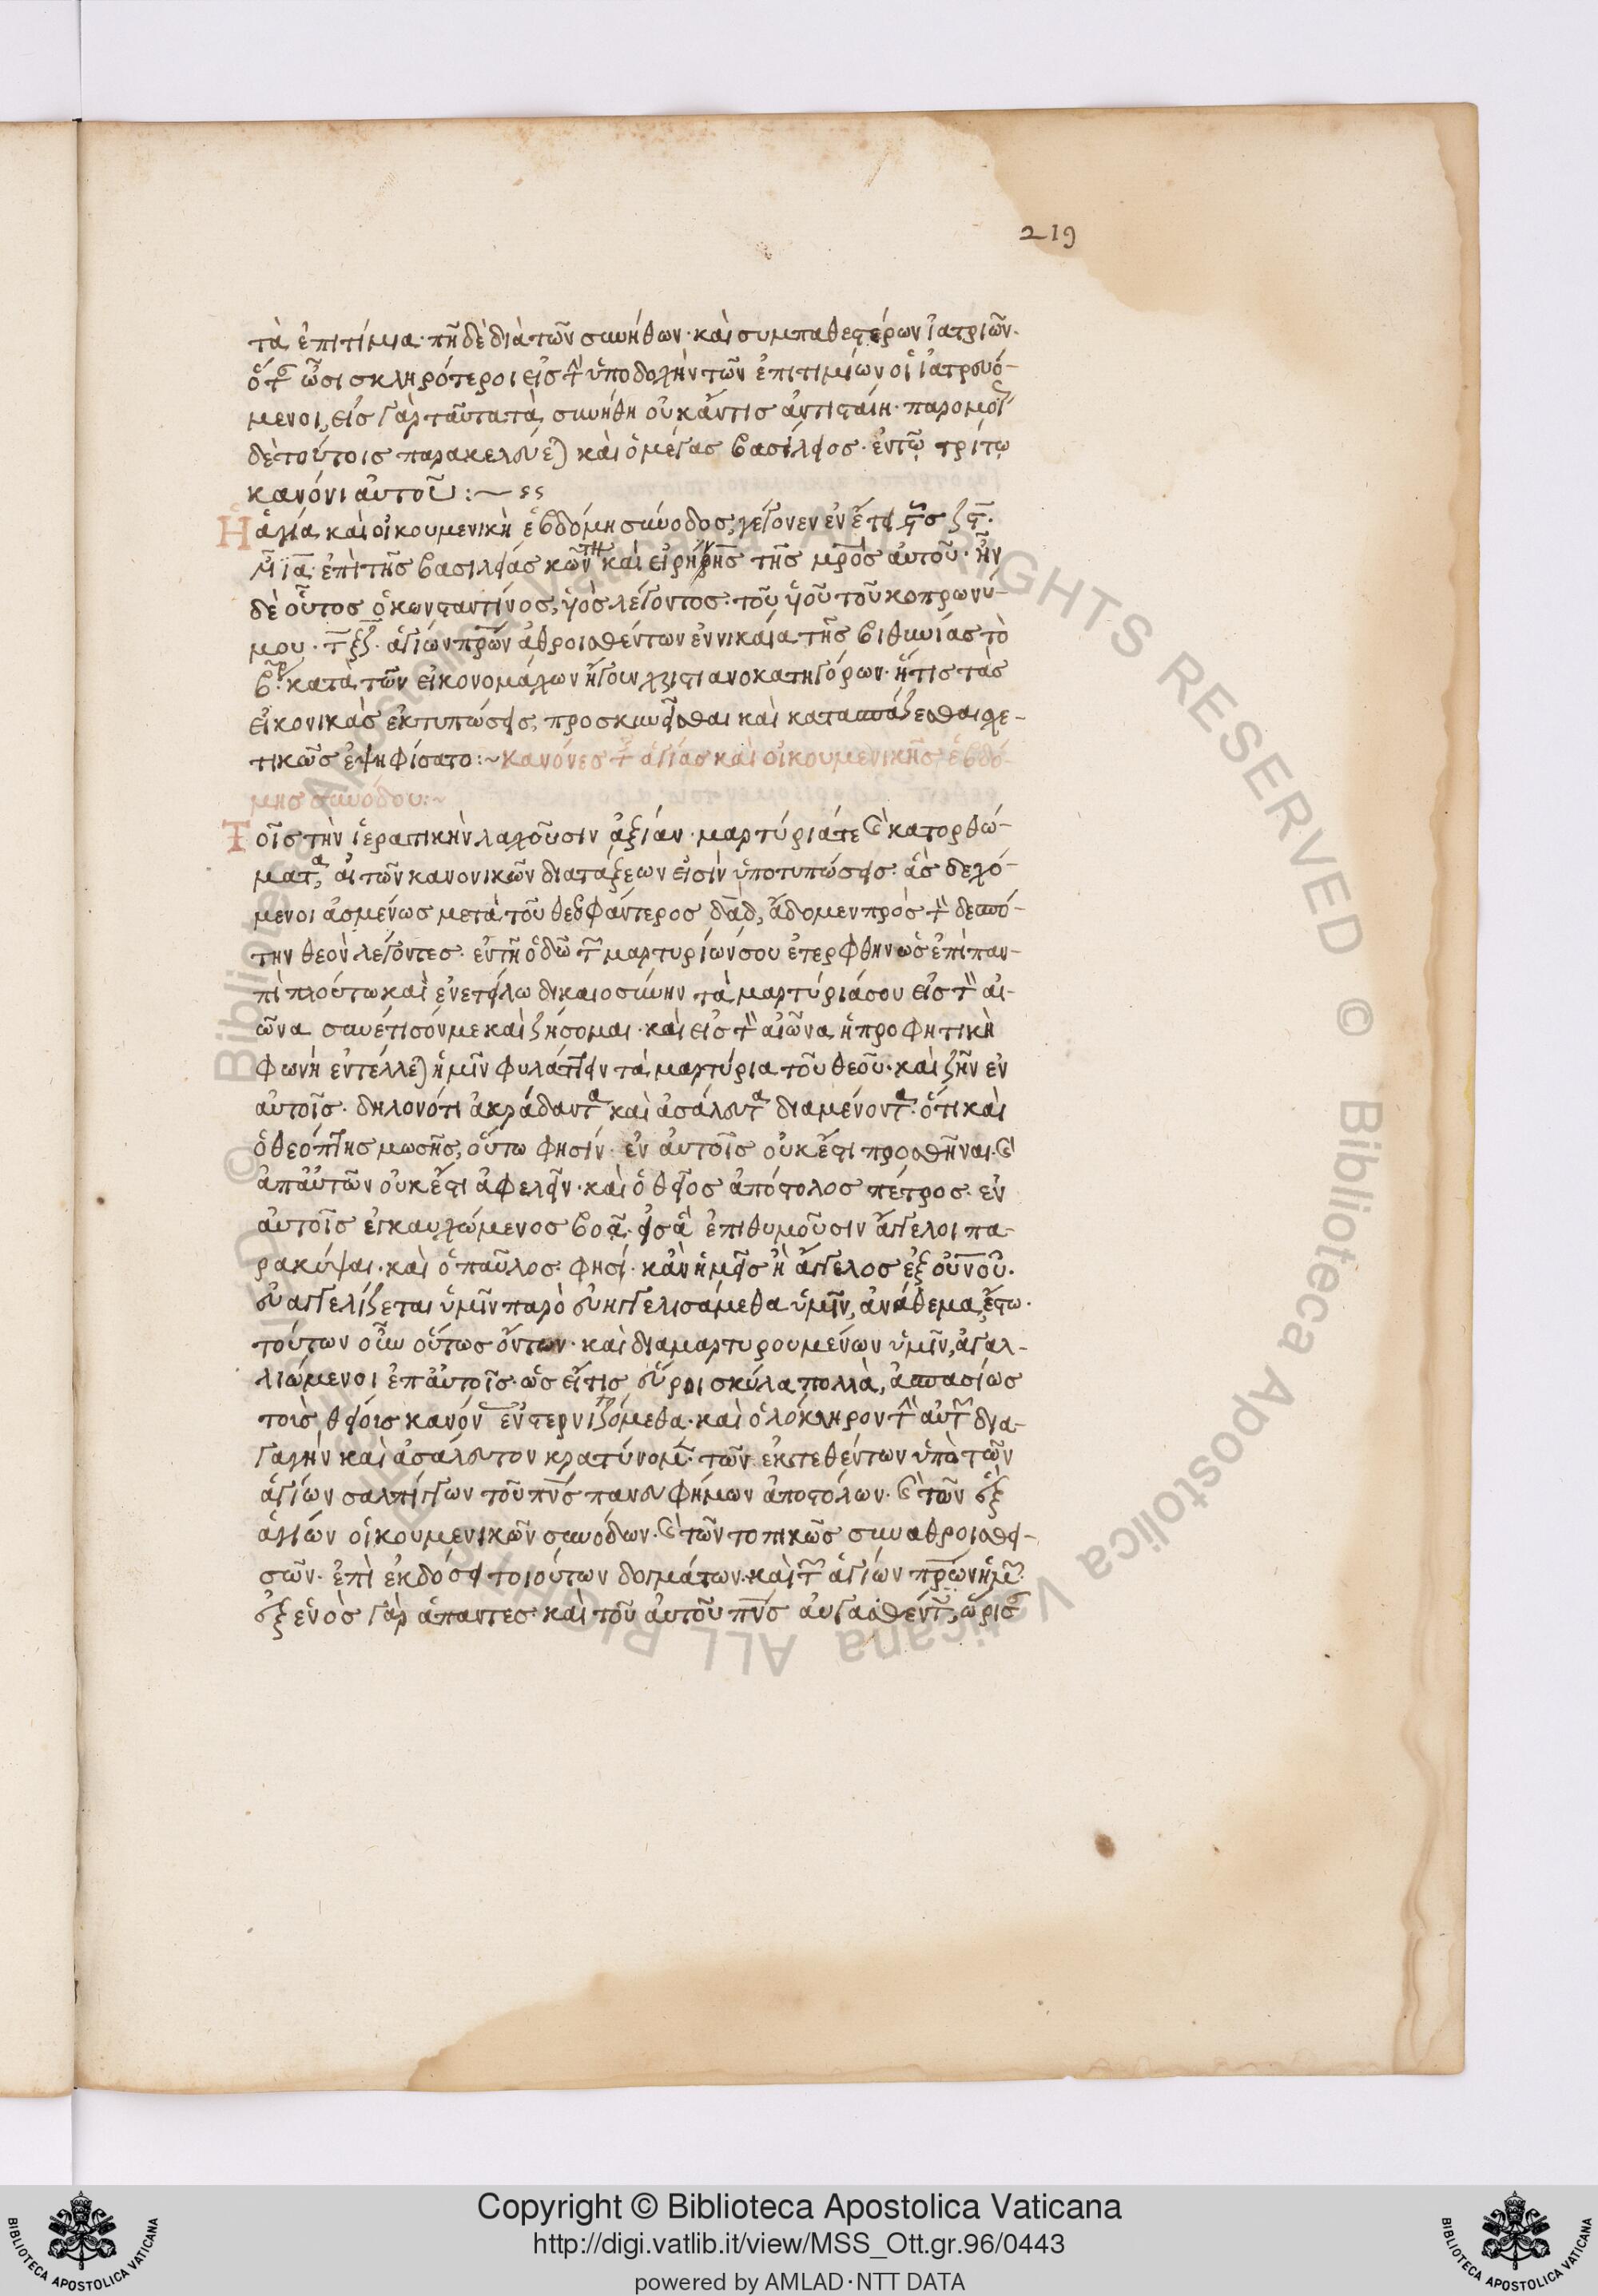 219
τὰ ἐπιτίμια· πῆ δὲ διὰ τῶν συνήθων· καὶ συμπαθεστέρων ἰατριῶν·
ὅτ ὦσι σκληρότεροι εἰς τ ὑποδοχὴν τῶν ἐπιτιμίων οἱ ἰατρευό-
μενοι, εἰς γὰρ ταῦτα τὰ συνήθη οὐκ ἄν τις ἀντισταίη· παρομοί
δὲ τούτοις παρακελεύε) καὶ ὁ μέγας βασίλειος· ἐν τῷ τρίτῳ
κανόνι αὐτοῦ :~
Ἡ ἁγία καὶ οἰκουμενικὴ ἑβδόμη σύνοδος, γέγονεν ἐν ἔτει
ἐπὶ τῆς βασιλείας κῶν καὶ εἰρήνης τῆς μρος αὐτοῦ· ἦν
δὲ οὗτος ὁ κωνσταντίνος, ὑιὸς λέγοντος· τοῦ ὑιοῦ τοῦ κοπρωνύ-
μου· τξζ· ἁγίων πρων ἀθροισθέντων ἐν νικαία τῆς βιθυνίας τὸ
βρ· κατὰ τῶν εἰκονομάχων ἤγουν χριστιανοκατηγόρων· ἥτις τὰς
εἰκονικὰς ἐκτυπώσεις, προσκυνεῖσθαι καὶ κατασπάζεσθαι σχε-
τικῶς ἐψηφίσατο :~ κανόνες τ ἁγίας καὶ οἰκουμενικῆς ἑβδό-
μης συνόδου :~
Τοῖς τὴν ἱερατικὴν λαχοῦσιν ἀξίαν· μαρτύριά τε καὶ κατορθώ-
ματ, αἱ τῶν κανονικῶν διατάξεων εἰσὶν ὑποτυπώσεις· ἃς δεχό-
μενοι ἀσμένως μετὰ τοῦ θεοφάντορος δαδ, ἄδομεν πρὸς τ δεσπό-
την θεὸν λέγοντες· ἐν τῆ ὁδῶ τ μαρτυρίων σου ἐτερφθην ὡς ἐπὶ παν-
τὶ πλούτω καὶ ἐνετείλω δικαιοσύνην τὰ μαρτύριά σου εἰς τ αἰ-
ῶνα συνέτισόν με καὶ ζήσομαι· καὶ εἰς τ αἰῶνα ἡ προφητικὴ
φωνὴ ἐντέλλε) ἡμῖν φυλάττειν τὰ μαρτύρια τοῦ θεοῦ· καὶ ζῆν ἐν
αὐτοῖς· δηλονότι ἀκράδαντα καὶ ἀσάλευτα διαμένοντα· ὅτι καὶ
ὁ θεόπτης μωσῆς, οὕτω φησίν· ἐν αὐτοῖς οὐκ ἔστι προσθῆναι· καὶ
ἀπ αὐτῶν οὐκ ἔστι ἀφελεῖν· καὶ ὁ θεῖος ἀπόστολος πέτρος· ἐν
αὐτοῖς ἐγκαυχώμενος βοᾶ· εἰς ἃ ἐπιθυμοῦσιν ἄγγελοι πα-
ρακύψαι· καὶ ὁ παῦλος φησί· κἂν ἡμεῖς ἢ ἄγγελος ἐξ οὐνοῦ·
εὐαγγελίζεται ὑμῖν παρὸ εὐηγγελισάμεθα ὑμῖν, ἀνάθεμα ἔστω·
τούτων οὖν οὕτως ὄντων· καὶ διαμαρτυρουμένων ὑμῖν, ἀγαλ-
λιώμενοι ἐπ αὐτοῖς· ὡς εἴ τις εὕροι σκύλα πολλὰ, ἀσπασίως
τοὶς θείοις κανόν ἐνστερνιζόμεθα· καὶ ὁλόκληρον τ αὐτ δια-
ταγὴν καὶ ἀσάλευτον κρατύνομ· τῶν ἐκτεθέντων ὑπὸ τῶν
ἁγίων σαλπίγγων τοῦ πνς πανευφήμων ἀποστόλων· καὶ τῶν ἓξ
ἁγίων οἰκουμενικῶν συνόδων· καὶ τῶν τοπικῶς συναθροισθει-
σῶν· ἐπὶ ἐκδόσει τοιούτων δογμάτων· καὶ τ ἁγίων πρων ἡμ·
ἐξ ἑνὸς γὰρ ἅπαντες· καὶ τοῦ αὐτοῦ πνς αὐγασθέντ, ὥρισ
Copyright © Biblioteca Apostolica Vaticana
http://digi.vatlib.it/view/MSS_Ott.gr.96/0443
powered by AMLAD·NTT DATA